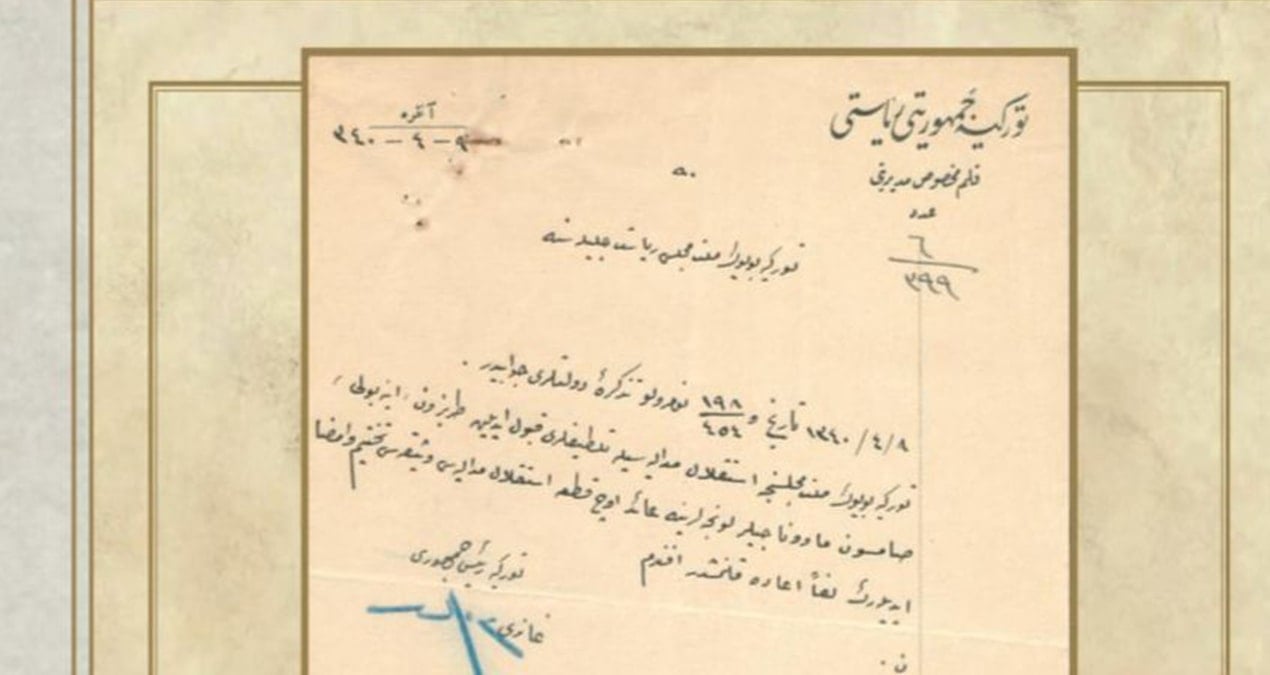 توركیه جمهوریتی ریاستی
قلم مخصوص مدیریتی
عدد
٦
٣٩٩
آنقره
٩ — ٤ — ٣٤٠
توركیه بویوك ملت مجلسی ریاست جلیله سنه
٨/٤/١٣٤٠ تاریخ و ١٩٨/٤٥٤ نومرولو تذكرهٔ دولتلری جوابیدر .
توركیه بویوك ملت مجلسنجه استقلال مدالیه سیله تلطیفلری قبول ایدیلن طرابزون ، اینه بولی ،
صامسون ماوناجیلر لونجه لرینه عائد اوچ قطعه استقلال مدالیه سی وثیقه سی تختیم وامضا
ایدیلەرك لفاً اعاده قلنمشدر افندم
توركیه رئیس جمهوری
غازی